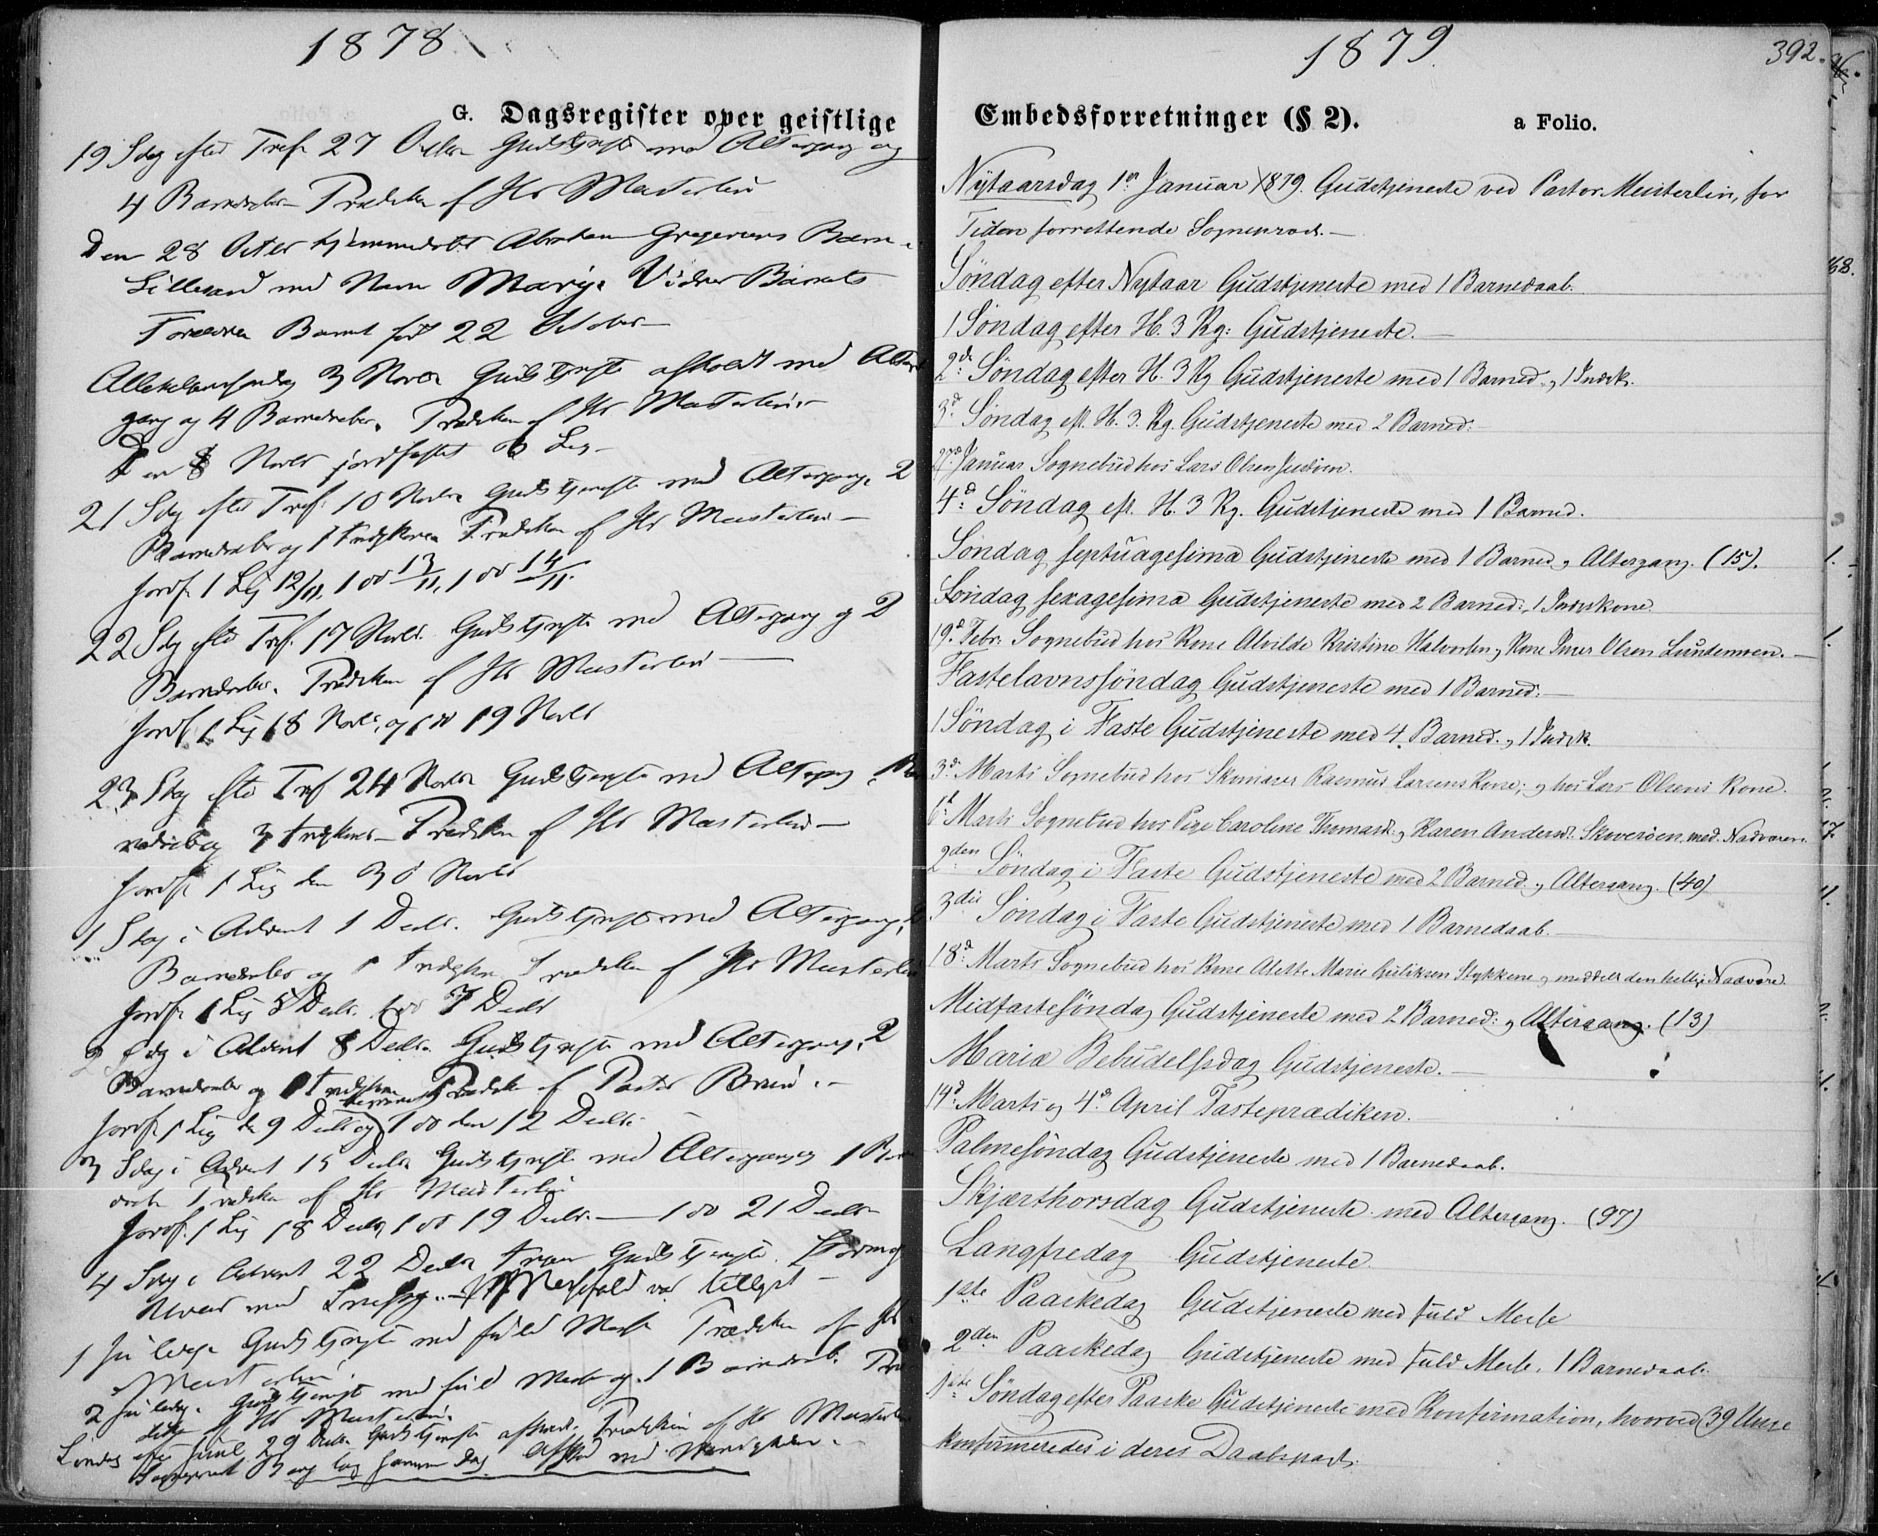 1878
G. Dagsregister over geistlige
19 Sdag efter Tref. 27 Octbr Gudstjeneste med Altergang og
4 Barnedaab Prædiken af Hr Meisterlin
Den 28 Octbr hjemmedøbt Abraham Gregersens Barn
Lillesand med Navn Marie Vidner Barnets
Forældre Barnet født 22 October
Allehelgensdag 3 Novbr Gudstjeneste afholdt med Alter
gang og 4 Barnedaaber. Prædiken af Hr Meisterlin
Den 8 Novbr jordfæstet Lig
21 Sdag efter Tref. 10 Novbr Gudstjeneste med Altergang, 2
Barnedaaber og 1 Indskreven Prædiken af Hr Meisterlin
Jordf. 1 Lig 12/11, 1 do 13/11, 1 do 14/11.
22 Sdag efter Tref. 17 Novbr. Gudstjeneste med Altergang og 2
Barnedaaber. Prædiken af Hr Meisterlin
Jordf. 1 Lig 18 Novbr, og 1 do 19 Novbr
23 Sdag efter Tref 24 Novbr Gudstjeneste med Altergang
3 Prædiken af Hr Meisterlin
Jordf. 1 Lig den 30 Novbr
1 Sdag i Advent 1 Decbr. Gudstjeneste med Altergang, 2
Barnedaaber og 1 Prædiken af Hr Meisterlin
Jordf. 1 Lig 5 Decbr. 1 do 7 Decbr
2 Sdag i Advent 8 Decbr. Gudstjeneste med Altergang, 2
Barnedaaber og 1 Prædiken af Pastor
Jordf. 1 Lig de 9 Decbr og 1 do den 12 Decbr.
3 Sdag i Advent 15 Decbr Gudstjeneste med Altergang og 1 Barne
daab Prædiken af Hr Meisterlin
Jordf. 1 Lig 18 Decbr, 1 do 19 Decbr. 1 do 21 Decbr
4 Sdag i Advent 22 Decbr Gudstjeneste. Storm og
Uveir med
1 Juledag Gudstjeneste med fuld Messe Prædiken af Hr
Meisterlin.
2 Juledag. Gudstjeneste med fuld Messe og 1 Barnedaab. Præ
diken af Hr Meisterlin.
Søndag efter Juul 29 Decbr Gudstjeneste afholdt. Prædiken af Hr Meisterlin
Sogneprest Berg samme Dag Afsked med Menigheden.
1879
392.
Embedsforretninger (§ 2).
a Folio.
Nytaarsdag 1ste Januar 1879. Gudstjeneste ved Pastor Meisterlin, for
Tiden forrettende Sogneprest.
Søndag efter Nytaar Gudstjeneste med 1 Barnedaab.
1 Søndag efter H. 3 Kg: Gudstjeneste.
2d: Søndag efter H. 3 Kg Gudstjeneste med 1 Barned. og 1 Indsk.
3d: Søndag eft. H. 3. Kg. Gudstjeneste med 2 Barned:
27 Januar Sognebud hos Lars Olsen
4d: Søndag eft. H. 3 Kg. Gudstjeneste med 1 Barned.
Søndag septuagesima Gudstjeneste med 1 Barned. og Altergang. (15).
Søndag sexagesima Gudstjeneste med 2 Barned:, 1 Indskone
19d. Febr. Sognebud hos Kone Alvilde Kristine Halvorsen og Kone Olsen Lundemoen.
Fastelavnssöndag Gudstjeneste med 1 Barned:
1 Søndag i Faste Gudstjeneste med 4. Barned. og 1 Indsk.
3d: Marts Sognebud hos Skomager Rasmus Larsens Kone; og hos Lars Olsens Kone.
6d Marts Sognebud hos Pige Caroline Thomasd: og Karen Andersd: Skoverøen med Nadveren.
2den Søndag i Faste Gudstjeneste med 2 Barned. og Altergang. (40)
3die Søndag i Faste Gudstjeneste med 1 Barnedaab.
18d. Marts Sognebud hos Kone Alette Marie Guliksen Stykkene og meddelt den hellige Nadvere.
Midfastesønda, Gudstjeneste med 2 Barned: og Altergang. (13)
Mariæ Bebudelsesdag Gudstjeneste.
14d. Marts og 4d. April Fasteprædiken.
Palmesöndag Gudstjeneste med 1 Barnedaab.
Skjærthorsdag Gudstjeneste med Altergang. (97)
Langfredag Gudstjeneste
1ste Paaskedag Gudstjeneste med fuld Messe
2den Paaskedag Gudstjeneste med fuld Messe. 1 Barnedaab.
1ste Søndag efter Paaske Gudstjeneste med Konfirmation, hvorved 39 Unge
konfirmeredes i deres Daabspagt.